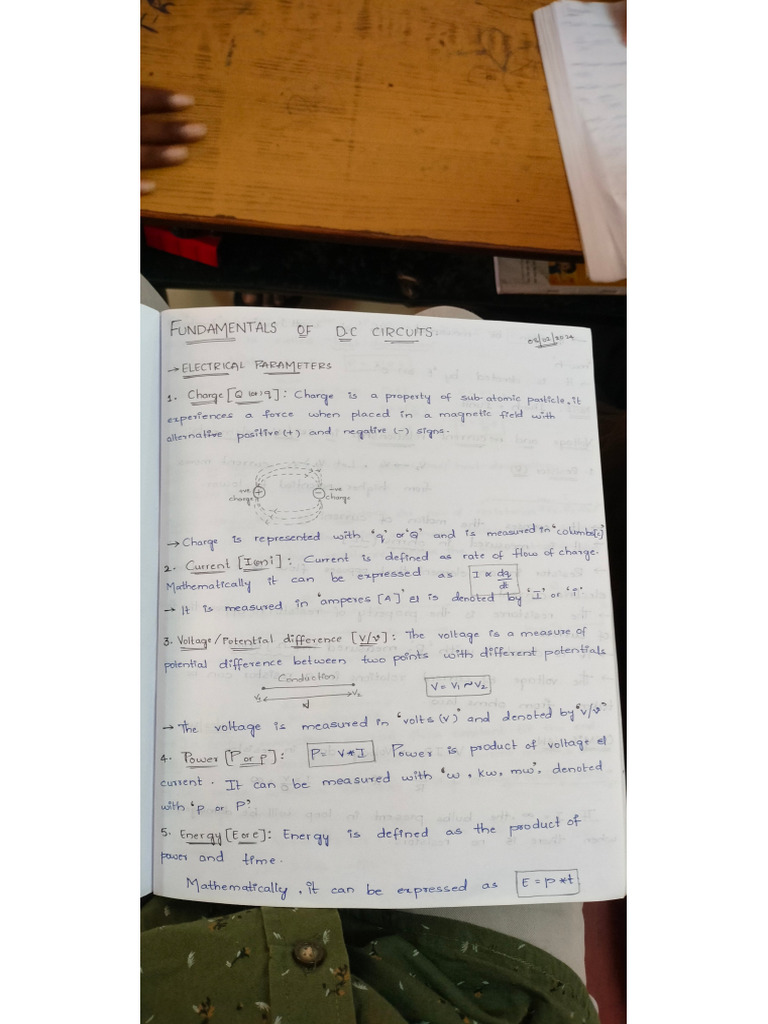 FUNDAMENTALS OF D.C CIRCUITS
→ ELECTRICAL PARAMETERS
1. Charge [Q (or) q] : Charge is a property of sub-atomic particle, it
experiences a force when placed in a magnetic field with
alternative positive (+) and negative (-) signs.
+ve charge + - -ve charge
→ Charge is represented with 'q' or 'Q' and is measured in 'columbs(c)'
2. Current [I (or) i] : Current is defined as rate of flow of charge.
Mathematically it can be expressed as I ∝ dq/dt
→ It is measured in 'amperes [A]' & is denoted by 'I' or 'i'
3. Voltage/Potential difference [V/v] : The voltage is a measure of
potential difference between two points with different potentials
Conduction
V₁ V₂ V = V₁ ~ V₂
d
→ The voltage is measured in 'volts (v)' and denoted by 'V/v'
4. Power [P or p] : P = V * I Power is product of voltage &
current. It can be measured with 'w, kw, mw', denoted
with 'p or P'
5. Energy [E or e] : Energy is defined as the product of
power and time.
Mathematically, it can be expressed as E = P * t